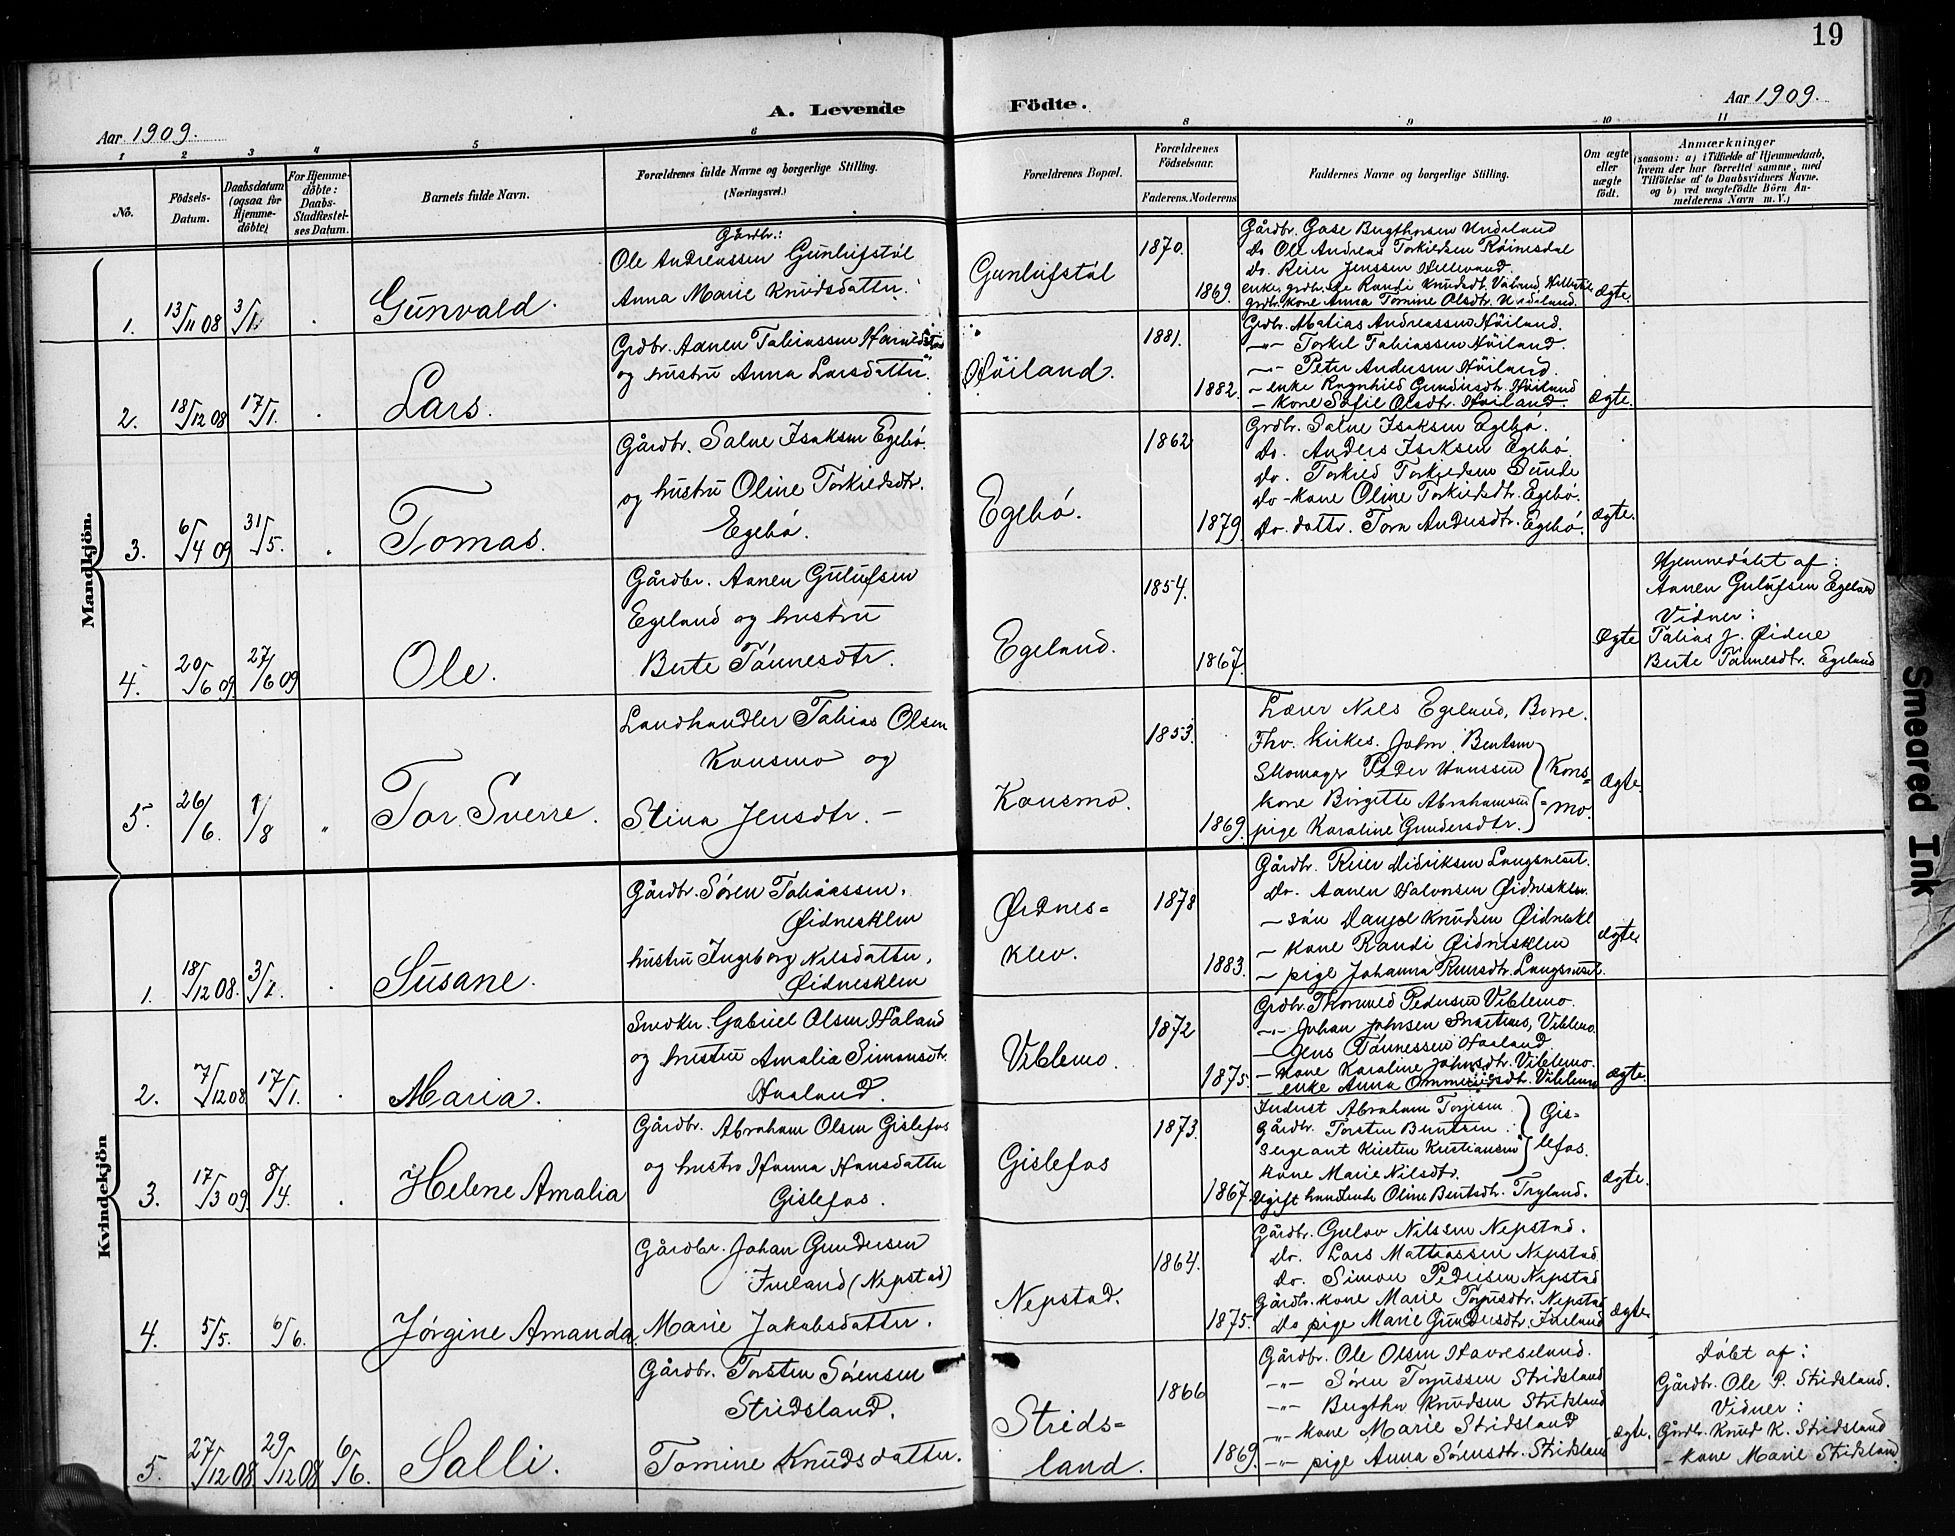 19
A. Levende Födte.
Aar 1909.
Aar 1909.
1 2 3 4 5 6 8 9 10 11
No.
Födsels-Datum.
Daabsdatum (ogsaa for Hjemme-döbte)
For Hjemme-döbte: Daabs-Stadfæstel-ses Datum.
Barnets fulde Navn.
Forældrenes fulde Navne og borgerlige Stilling.
(Næringsvei.)
Forældrenes Bopæl.
Forældrenes Födselsaar.
Faderens. Moderens
Faddernes Navne og borgerlige Stilling.
Om ægte eller uægte födt.
Anmærkninger
(saasom: a) i Tilfælde af Hjemmedaab,
hvem der har forrettet samme, med
Tilföielse af to Daabsvidners Navne.
og b) ved uegtefödte Börn An-
melderens Navn m. V.)
Mandkjön.
1. 13/11 08 3/1 Gunvald.
Gårdbr.:
Ole Andreassen Gunlufstøl
Anna Marie Knudsdatter.
Gunlufstøl
1870.
1869.
Gårdbr. Gase Bergthorsen Undeland
Do Ole Andreas Torkildsen Röinesdal
do. Reier Jenssen Hillevand.
grdbr. kone Anna Tomine Olsdtr. Undeland.
Ægte.
2. 18/12 08 17/1. Lars.
Grdbr. Aanen Tobiassen
og hustru Anna Larsdatter.
Høiland.
1881.
1882.
Grdbr. Matias Andreassen Høiland.
-"- Torkel Tobiassen Høiland.
-"- Peter Andersen Høiland.
- enke Ragnhild Gundersdtr. Høiland
- kone Sofie Olsdtr. Høiland.
Ægte.
3. 6/4 09 31/5. Tomas.
Gårdbr. Salve Isaksen Egebø.
og hustru Oline Torkieldsdtr.
Egebø.
Egebø.
1862
1879
Grdbr. Salve Isaksen Egebø.
Do. Anders Isaksen Egebø.
do. Torkild Torkildsen Sunde
do - kone Oline Torkieldsdtr. Egebø.
Do. dattr. Tora Andersdtr. Egebø.
Ægte.
4. 20/6 09 27/6 09 Ole.
Gårdbr. Aanen Gulufsen
Egeland og hustru
Berte Tønnesdtr.
Egeland.
1854.
1867.
Ægte
Hjemmedøbt af:
Aanen Gulufsen Egeland
Vidner:
Tobias J. Øidne
Berte Tønnesdtr. Egeland
5. 26/6. 1/8 " Tor Sverre.
Landhandler Tobias Olsen
Konsmo og
Stina Jensdtr. -
Konsmo.
1853.
1869.
Lærer Nils Egeland, Borre.
Fhv. Kirkes. John Bentsen
Skomagr Peder Hanssen } Kons=
kone Birgitte Abrahamsen = mo.
pige Karoline Gundersdtr.
Ægte
Kvindekjön
1. 18/12 08. 3/1. Susane.
Gårdbr. Søren Tobiassen.
Øidnesklev
hustru Ingeborg Nilsdatter,
Øidnesklev
Øidnes=
klev.
1878
1883.
Gårdbr. Reier Didriksen Langsneset.
Do. Aanen Halvorsen Øidnesklev.
- søn Daniel Knudsen Øidneskl
- kone Randi Øidnesklev
- pige Johanna Langsneset.
Ægte
2. 7/12 08 17/1. Maria.
Snedker. Gabriel Olsen Haaland
og hustru Amalia Simonsdtr.
Haaland.
Viblemo.
1872
1875.
Grdbr. Thorvald Pedersen Viblemo.
-"- Johan Johnsen Viblemo.
- Jens Tønnessen Haaland
- kone Karoline Johnsdtr. Viblemo.
- enke Anna Ommundsdtr. Viblemo
Ægte.
3. 17/3 09. 8/4. Helene Amalia
Gårdbr. Abraham Olsen Gislefos
og hustro Hanna Hansdatter
Gislefos.
Gislefos
1873.
1867.
Inderst Abraham Torjesen
Gårdbr. Torsten Bentsen. } Gis=
Sergeant Kristen Kristiansen lefos.
Kone Marie Nilsdtr.
Ugift handlende Oline Bentsdtr. Tryland.
Ægte.
4. 5/5. 6/6. Jørgine Amanda.
Gårdbr. Johan Gundersen
Fueland (Nepstad)
Marie Jakobsdatter.
Nepstad.
1864.
1875.
Gårdbr. Gulov Nilssen Nepstad.
do. Lars Mattiassen Nepstad
do. Simon Pedersen Nepstad
Gårdbr. kone Marie Torjusdtr. Nepstad
Do pige Marie Gundersdtr. Fueland
Ægte.
5. 27/12 08. 29/12 08 6/6. Salli.
Gårdbr. Torsten Sørensen
Stridsland.
Tomine Knudsdatter.
Strids=
land.
1866
1869.
Gårdbr. Ole Olsen Havreseland.
-"- Søren Torjussen Stridsland
-"- Bergthor Knudsen Stridsland
-"- kone Marie Stridsland
-"- pige Anna Sørensdtr. Stridsland
Ægte.
Døbt af:
Gårdbr. Ole P. Stridsland.
Vidner:
Grdb. Knud K. Stridsland
- kone Marie Stridsland.
Smeared Ink